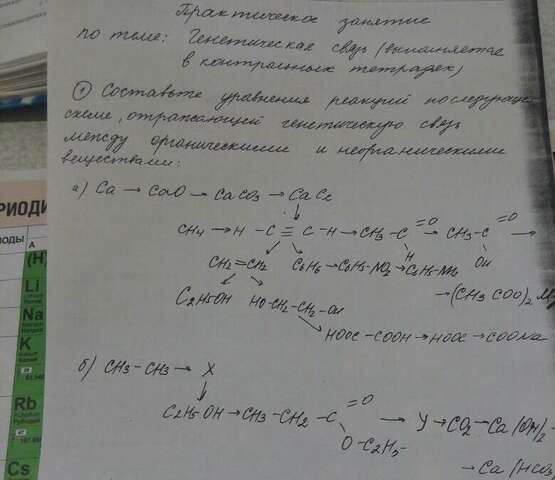 Практическое занятие
по теме: Генетическая связь (выполняется
в контрольных тетрадях)
① Составьте уравнения реакций последующ
схеме, отражающей генетическую связь
между органическими и неорганическими
веществами:
а) Ca → CaO → CaCO3 → CaC2
CH4 → H - C ≡ C - H → CH3 - C =O H → CH3 - C =O OH →
CH2=CH2 C6H6 → C6H5-NO2 → C6H5-NH2
→ (CH3COO)2 Mg
C2H5OH HO-CH2-CH2-OH
HOOC - COOH → HOOC → COONa
б) CH3 - CH3 → X
C2H5-OH → CH3 - CH2 - C =O O - C2H5 → У → CO2 → Ca(OH)2 -
→ Ca(HCO3
РИОДИ
ОДЫ A
(H)
Li
Литий
Na
Натрий
K
Калий
29
63,546
Rb
Рубидий
47
107,868
Cs